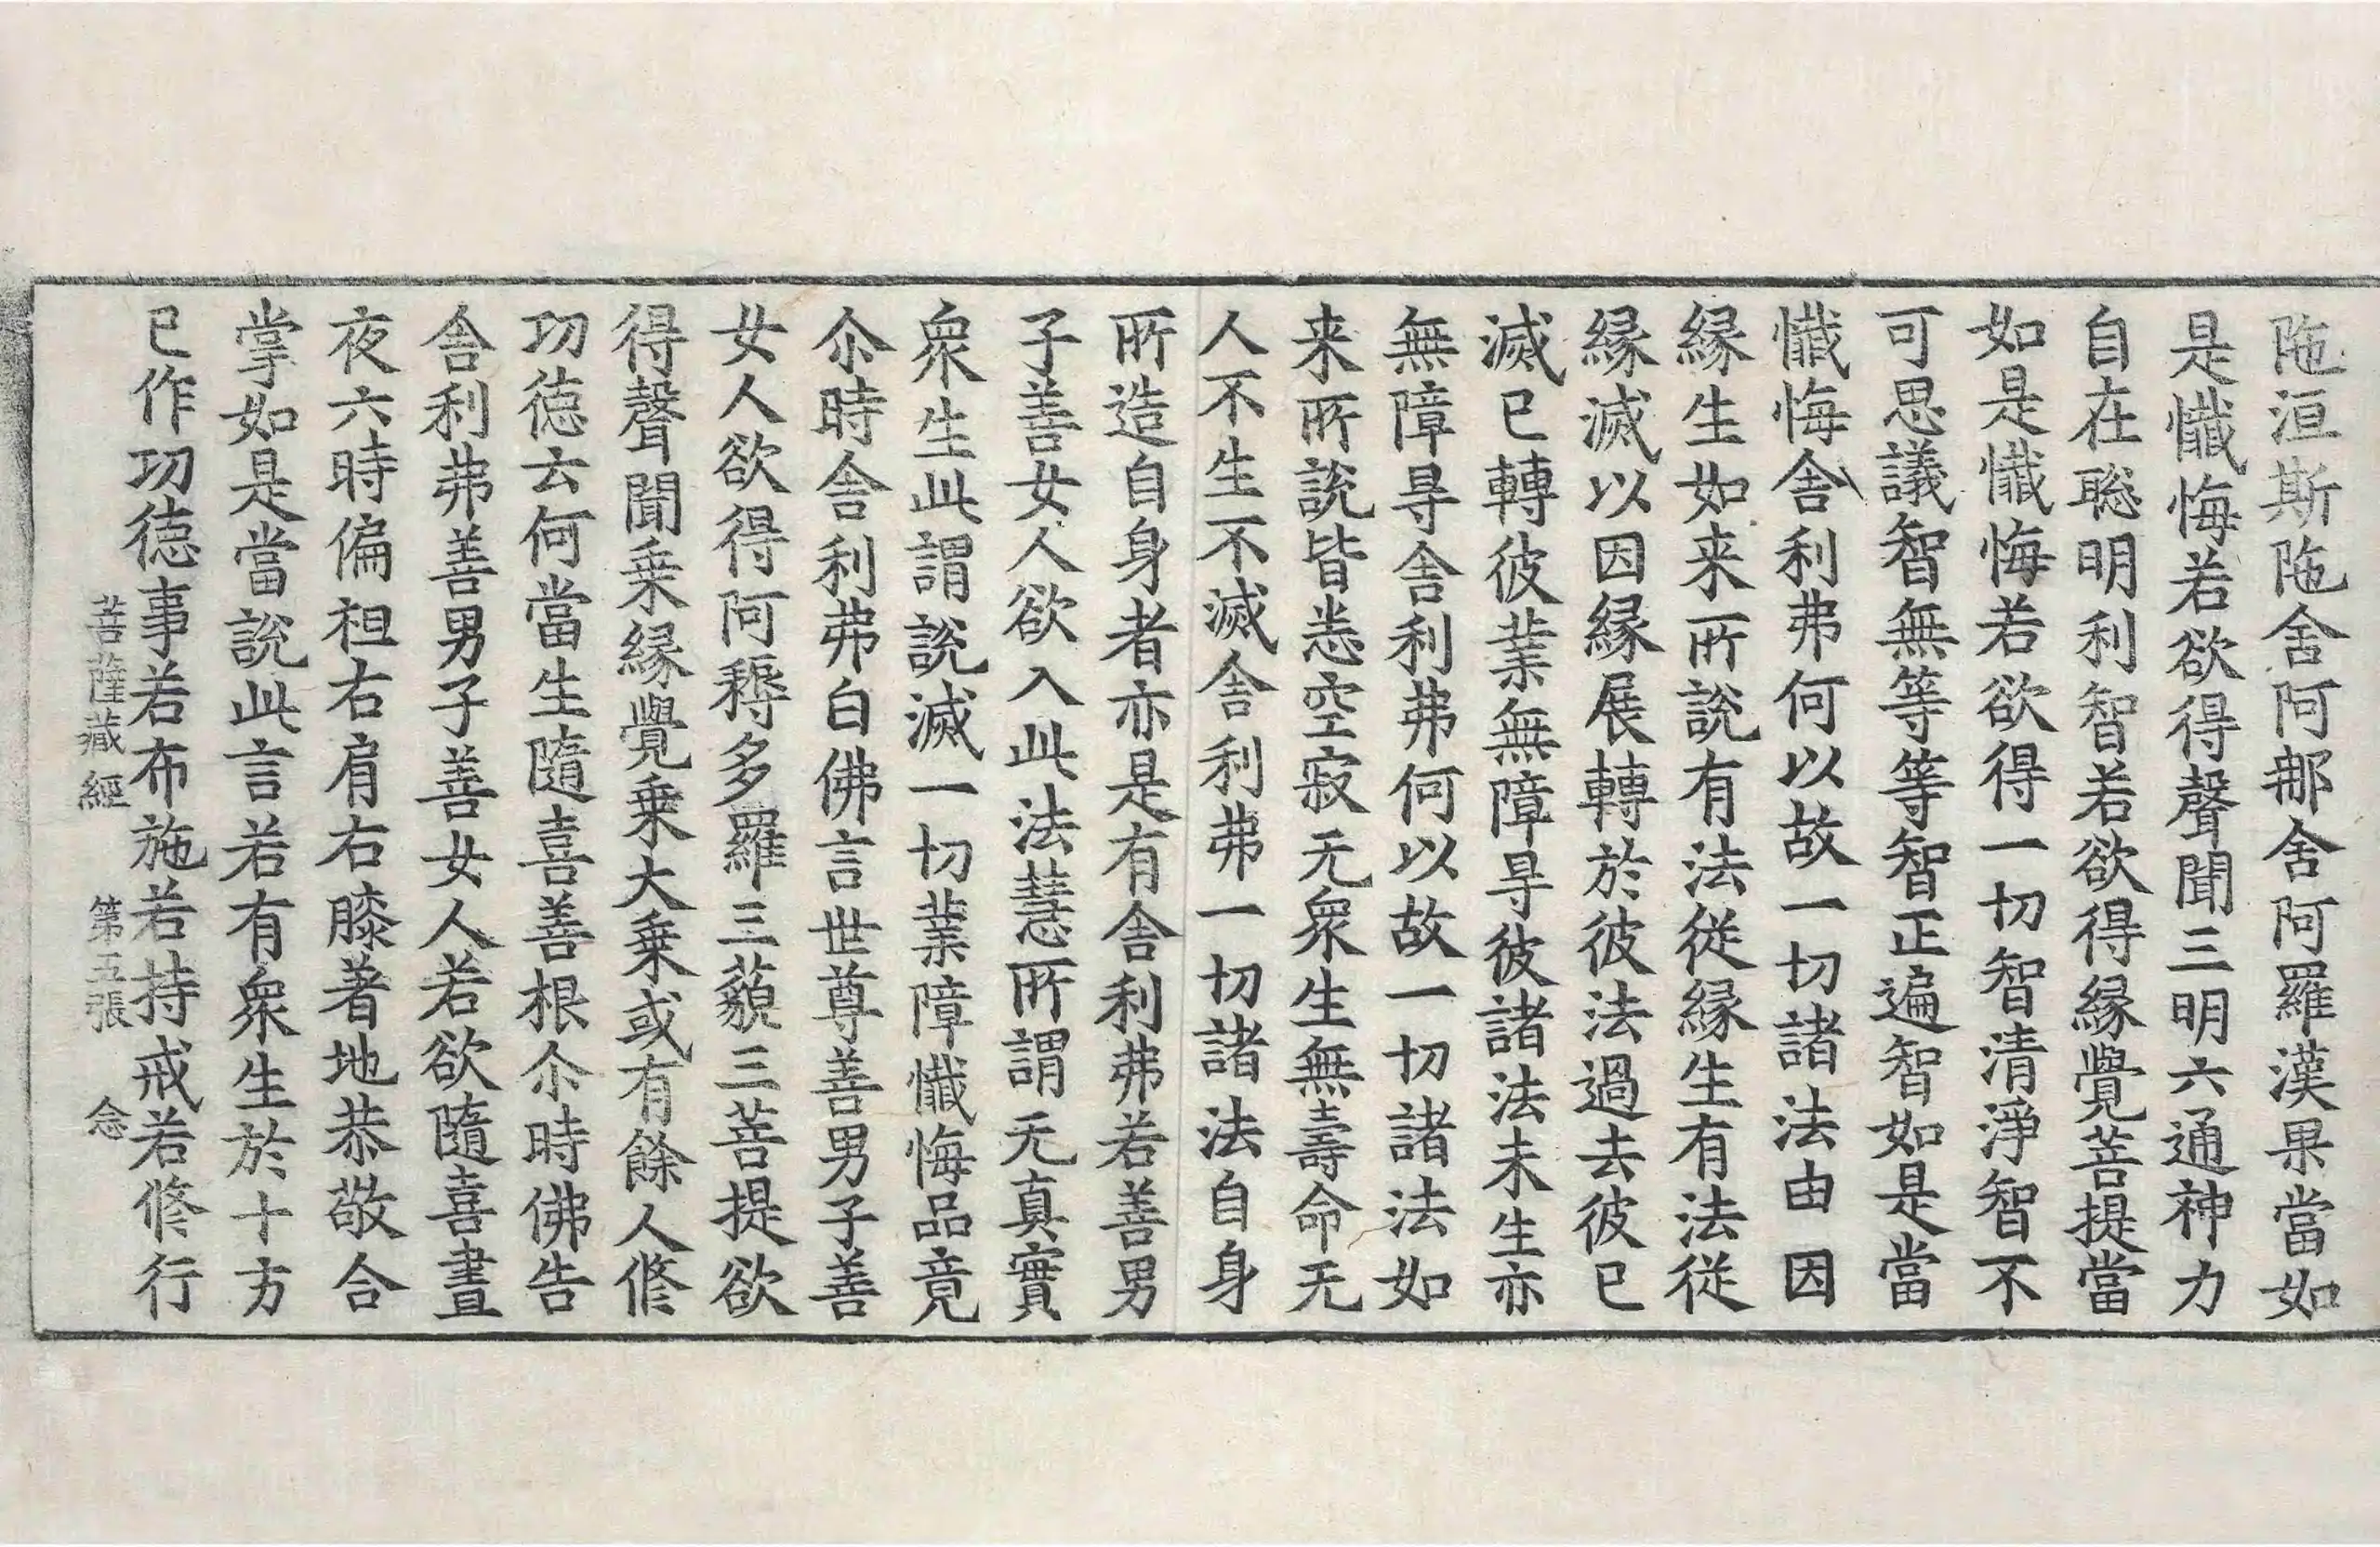 陁洹斯陁舍阿那舍阿羅漢果當如
是懺悔若欲得聲聞三明六通神力
自在聡明利智若欲得縁覺菩提當
如是懺悔若欲得一切智清淨智不
可思議智無等等智正遍智如是當
懺悔舍利弗何以故一切諸法由因
縁生如来所說有法從縁生有法從
縁滅以因縁展轉於彼法過去彼已
滅已轉彼業無障㝵彼諸法未生亦
無障㝵舍利弗何以故一切諸法如
来所說皆悉空寂无衆生無壽命无
人不生不滅舍利弗一切諸法自身
所造自身者亦是有舍利弗若善男
子善女人欲入此法慧所謂无真實
衆生此謂說滅一切業障懺悔品竟
尒時舍利弗白佛言世尊善男子善
女人欲得阿耨多羅三藐三菩提欲
得聲聞乗縁覺乗大乗或有餘人修
功徳云何當生隨喜善根尒時佛告
舍利弗善男子善女人若欲隨喜晝
夜六時偏袒右肩右膝著地恭敬合
掌如是當說此言若有衆生於十方
已作功徳事若布施若持戒若修行
菩薩藏經 第五張 念